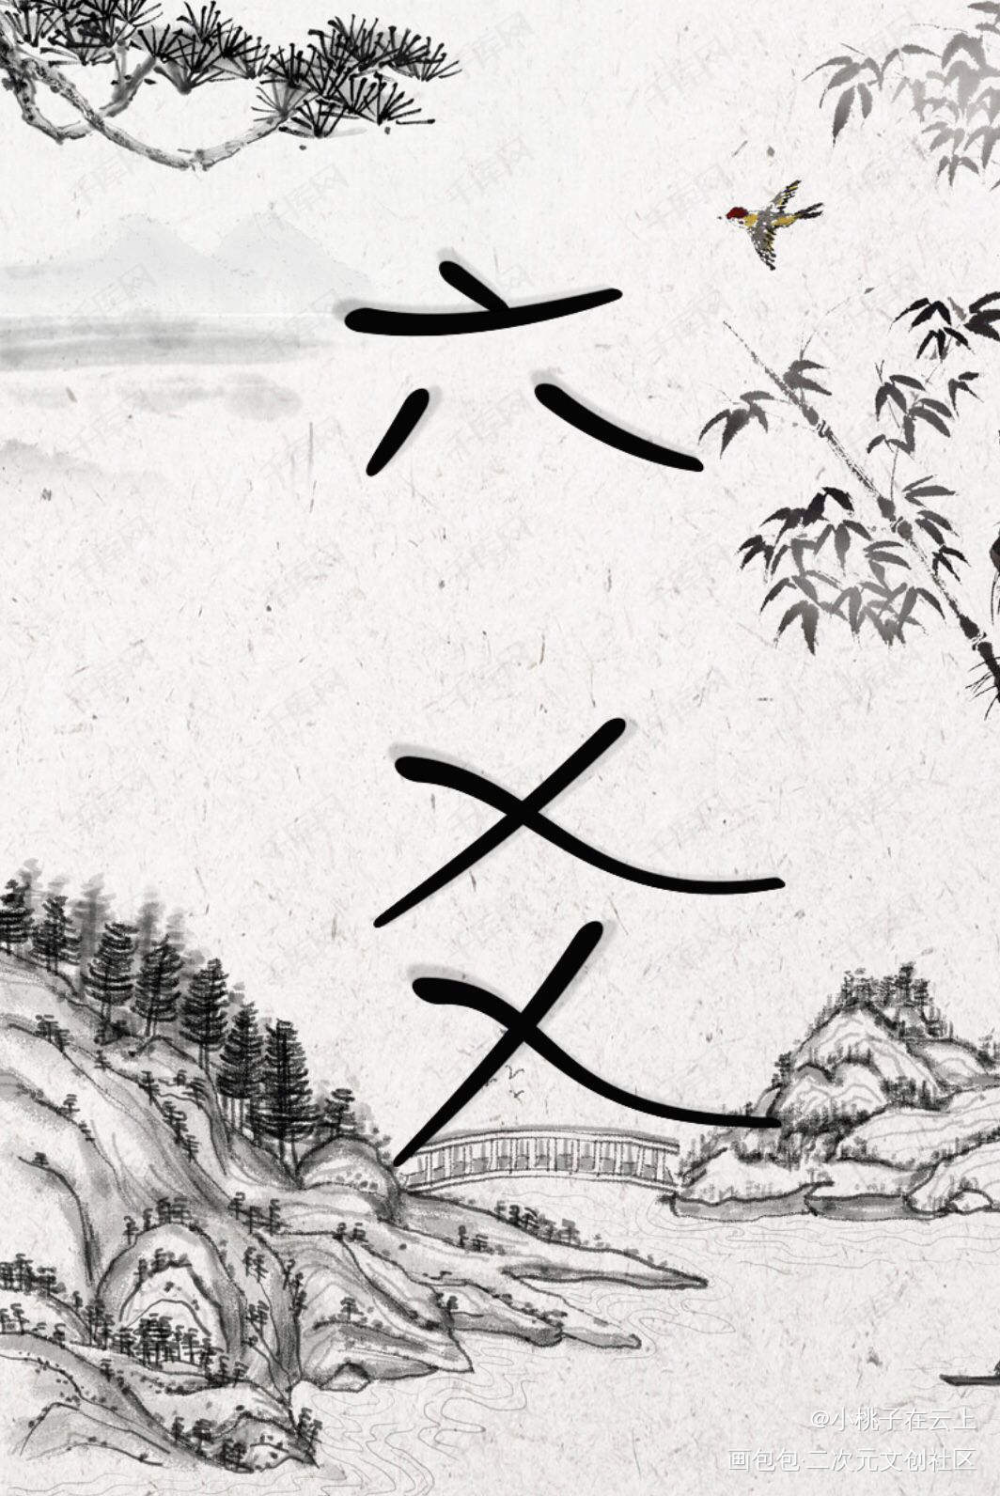 六
爻
@小桃子在云上
画包包·二次元文创社区